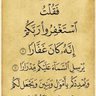 فَقُلْتُ
ٱسْتَغْفِرُوا۟ رَبَّكُمْ
إِنَّهُۥ كَانَ غَفَّارًا ۝
يُرْسِلِ ٱلسَّمَآءَ عَلَيْكُم مِّدْرَارًا ۝
وَيُمْدِدْكُم بِأَمْوَٰلٍ وَبَنِينَ وَيَجْعَل لَّكُمْ